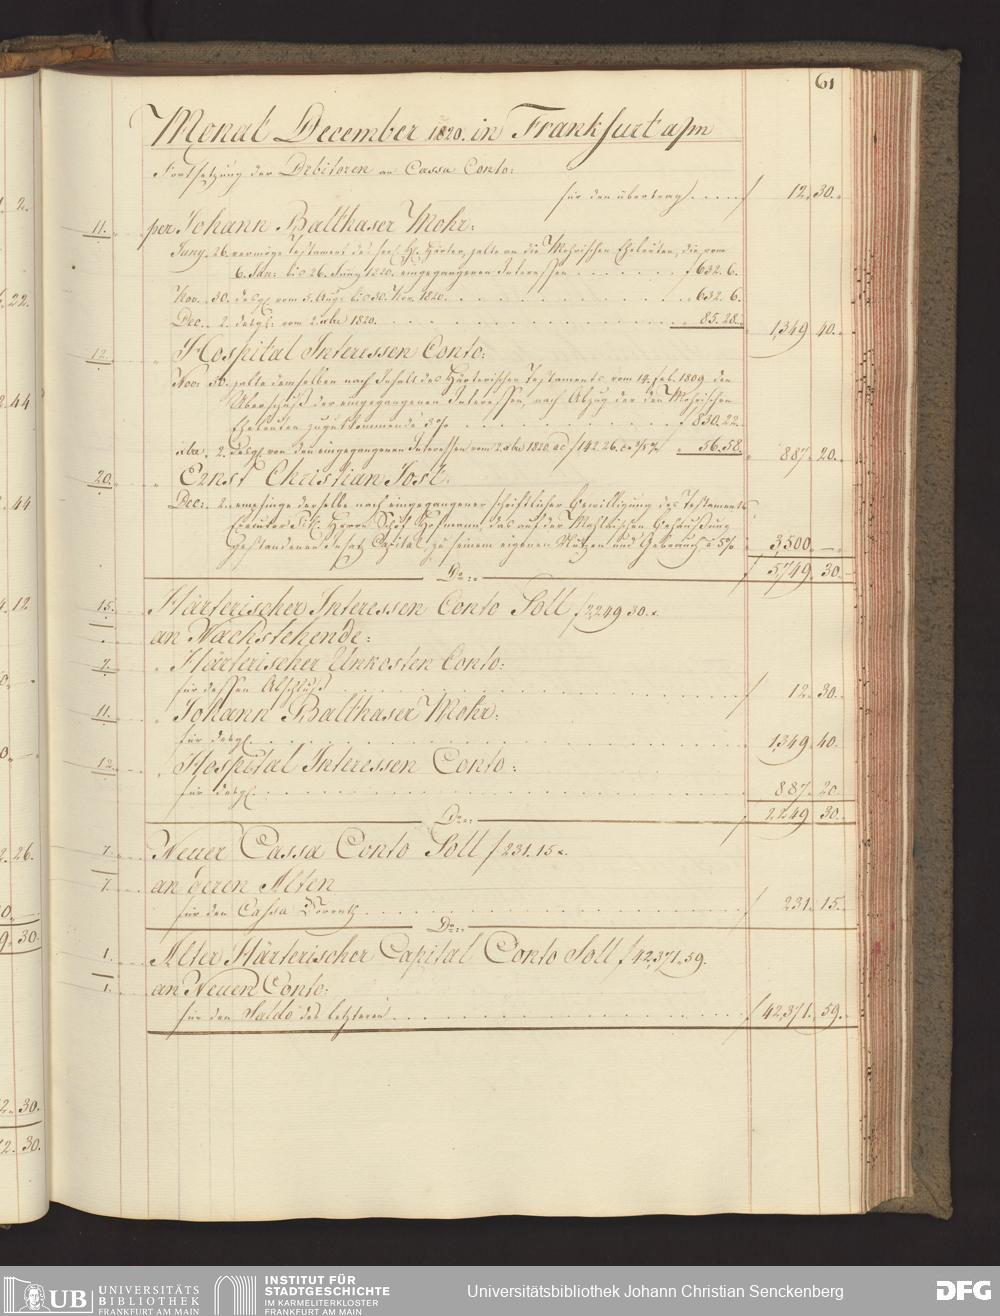 61
Monat December 1820. in Frankfurt a/m
Fortsetzung der Debitoren an Cassa Conto:
für den übertrag . . . . . f 12. 30.
11. per Johann Balthaser Mohr:
Juny. 26. vermöge Testament des sel. H. Härter, zalte an die Mohrischen Eheleuten, die vom
6. Jan: bis 26. Juny 1820. eingegangenen Interessen . . . . . . f 632. 6.
Nov. 30. desgl. vom 5. Aug: bis 30. Nov. 1820. . . . . . " 632. 6.
Dec. 2. desgl: vom 2. xbr 1820. . . . . . " 85. 28. 1,349 40.
12. " Hospital Interessen Conto:
Nov: 30. zalte demselben nach Inhalt des Härterischen Testaments vom 14. feb. 1809 den
Überschuß der eingegangenen Interessen, nach Abzug der den Mohrischen
Eheleuten zugutkommende 3% . . . . . . f 830. 22.
xbr. 2. desgl. von den eingegangenen Interessen vom 2. xbr 1820. f 142. 26. " 56. 58. 887. 20.
20. " Ernst Christian Jost:
Dec: 2. empfinge derselbe nach eingegangener schriftlicher Bewilligung des Testaments
Executor Herrn Schöf Hofmann, das auf der Behaußung
gestandenen Insatz Capital, zu seinem eigenen Nutzen und Gebrauch à 5% 3,500. —
Do:
f 5,749 30.
15. Härterischer Interessen Conto Soll f 2,249 30. x.
an Nachstehende:
7. " Härterischer Unkosten Conto:
für dessen Abschluß . . . . . f 12. 30.
11. " Johann Balthaser Mohr:
für desgl. . . . . . 1,349 40.
12. " Hospital Interessen Conto:
für desgl. . . . . . 887. 20
Do:
f 2,249 30.
7. Neuer Cassa Conto Soll f 231. 15 x.
7. an deren Alten
für den Cassa Vorrath . . . . . f 231. 15.
Do:
1. Alter Härterischer Capital Conto Soll f 42,371. 59.
1. an Neuen Conto:
für den Saldo des letzteren . . . . . f 42,371. 59.
1. 2.
22.
2. 44
. 44
4. 12
2. 26.
9. 30.
2. 30.
2. 30.
UB UNIVERSITÄTS
BIBLIOTHEK
FRANKFURT AM MAIN
INSTITUT FÜR
STADTGESCHICHTE
IM KARMELITERKLOSTER
FRANKFURT AM MAIN
Universitätsbibliothek Johann Christian Senckenberg
DFG